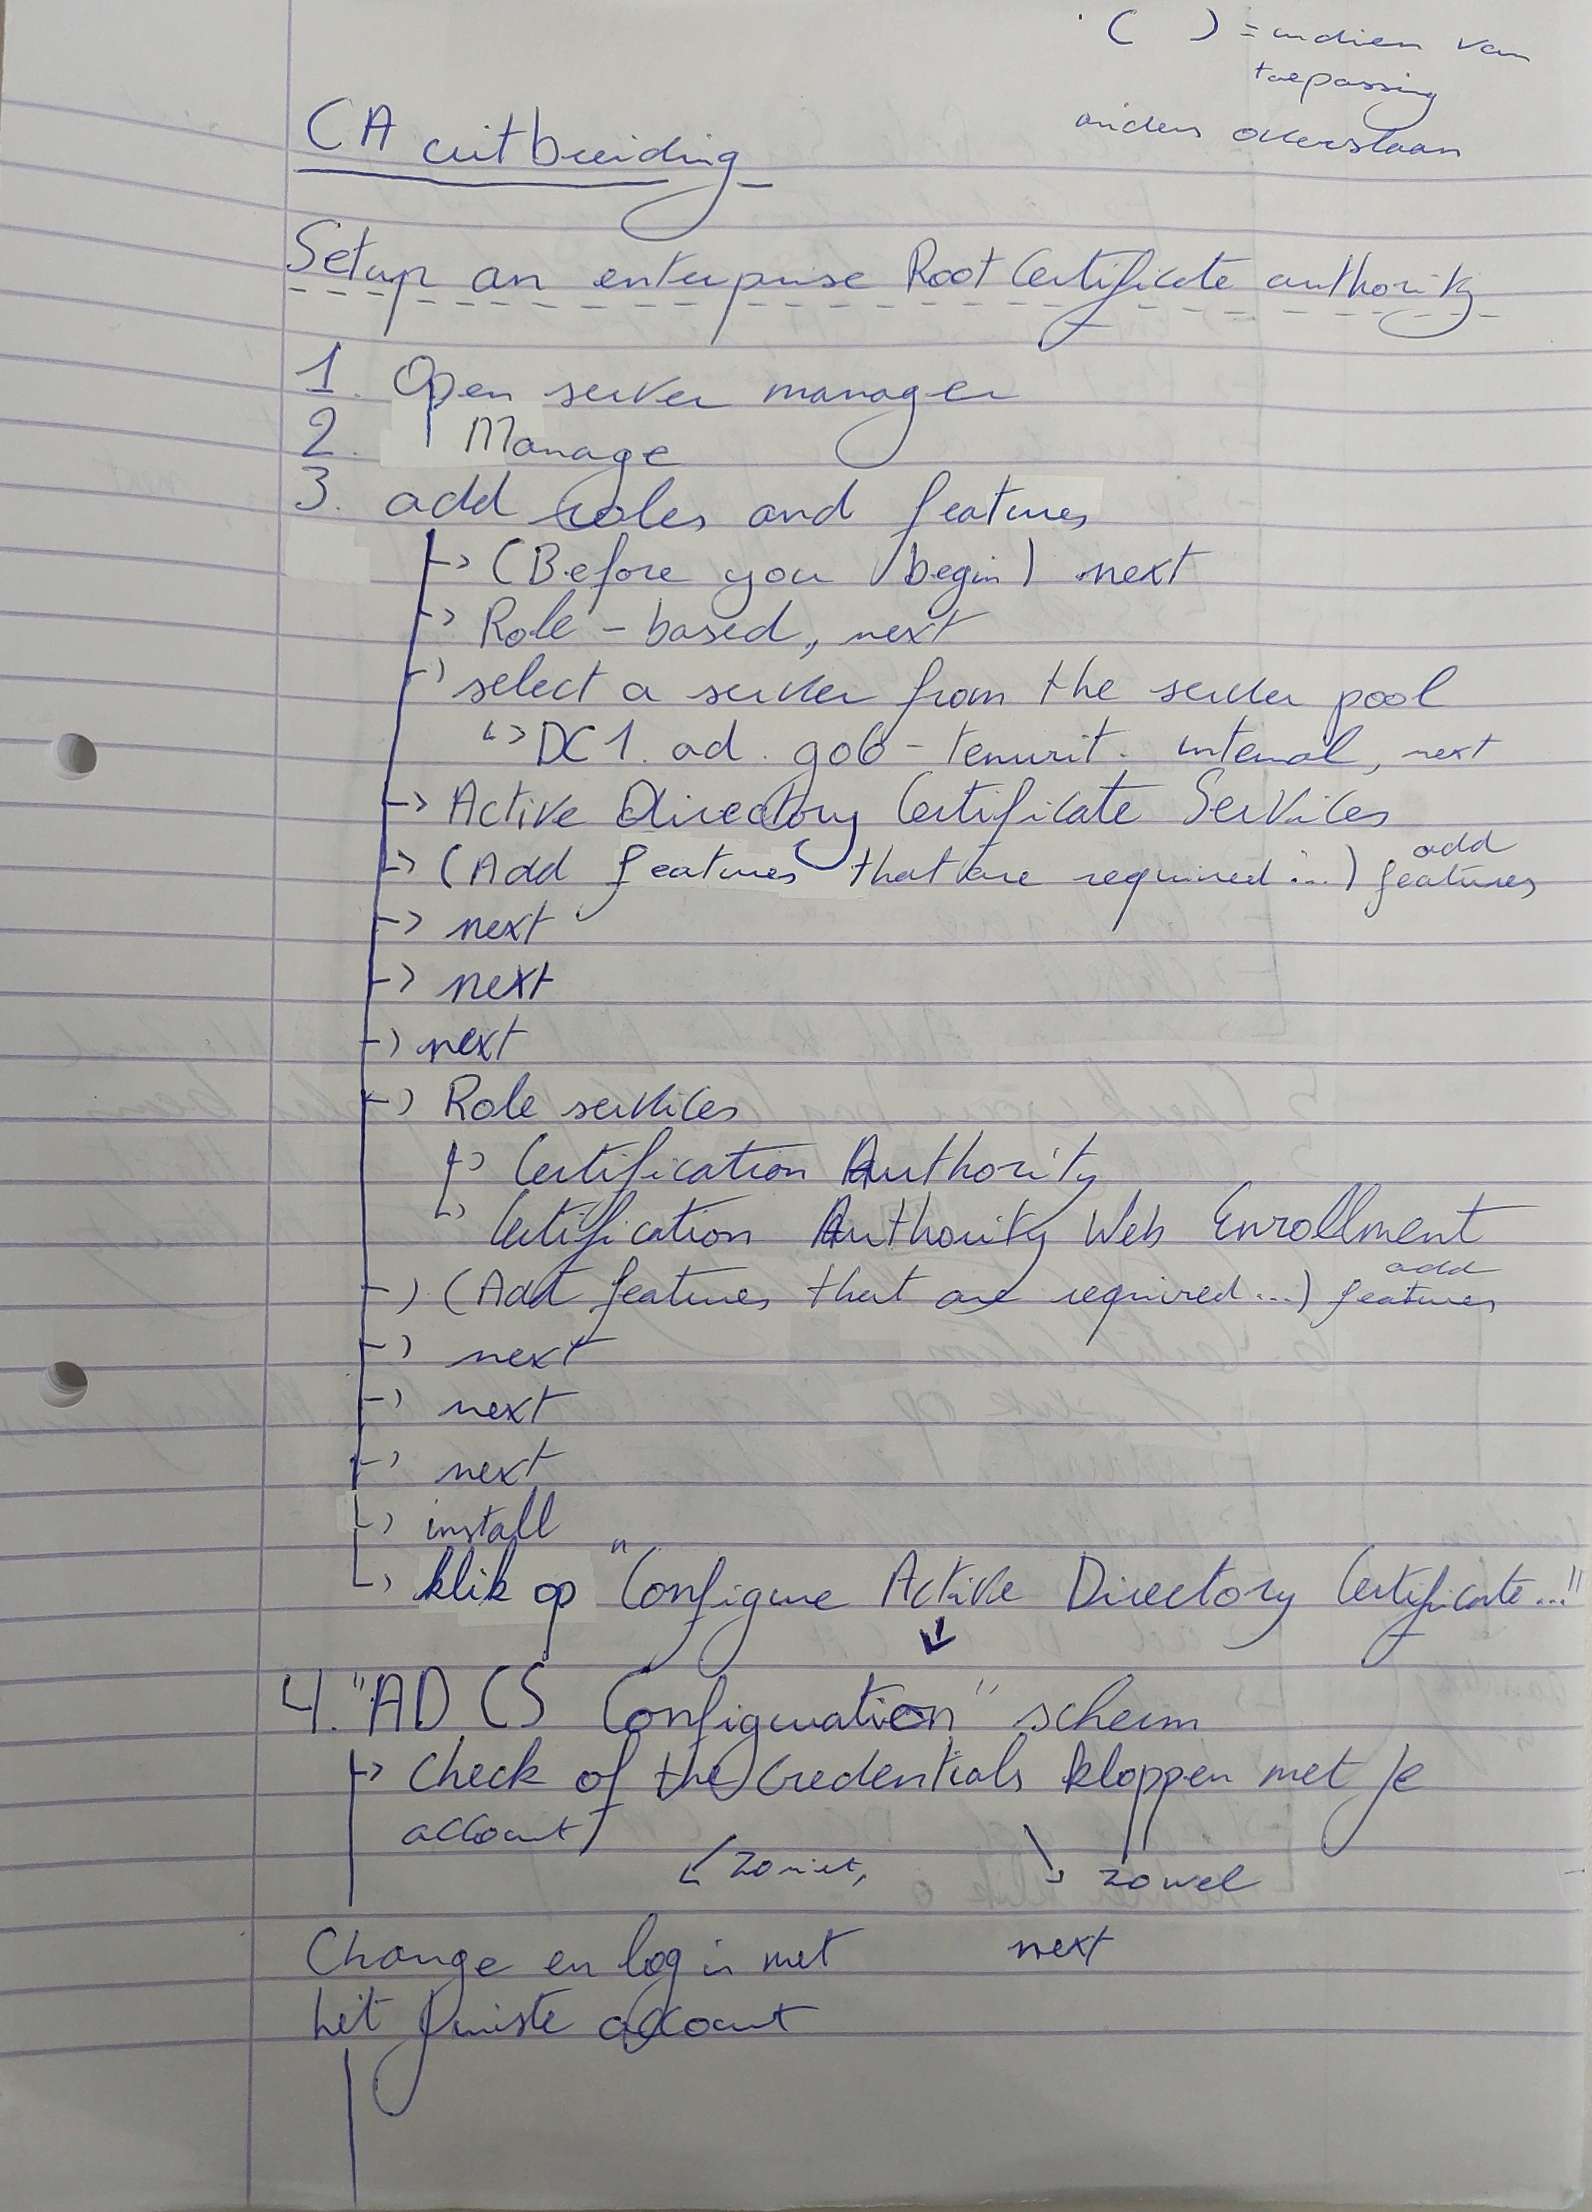 ( ) = indien van
toepassing
anders overslaan
CA uitbreiding
Setup an enterprise Root Certificate authority
1. Open server manager
2. Manage
3. add roles and features
↳> (Before you begin) next
↳> Role - based, next
↳> select a server from the server pool
↳> DC1. ad. go6 - tenurit. internal, next
↳> Active Directory Certificate Services
↳> (Add features that are required ...) add features
↳> next
↳> next
↳> next
↳> Role services
↳> Certification Authority
↳> Certification Authority Web Enrollment
↳> (Add features that are required ...) add features
↳> next
↳> next
↳> next
↳> install
↳> klik op "Configure Active Directory Certificate..."
↓
4. "AD CS Configuration" scherm
↳> Check of the credentials kloppen met je
account
↙ zo niet, ↘ zo wel
Change en log in met next
het juiste account